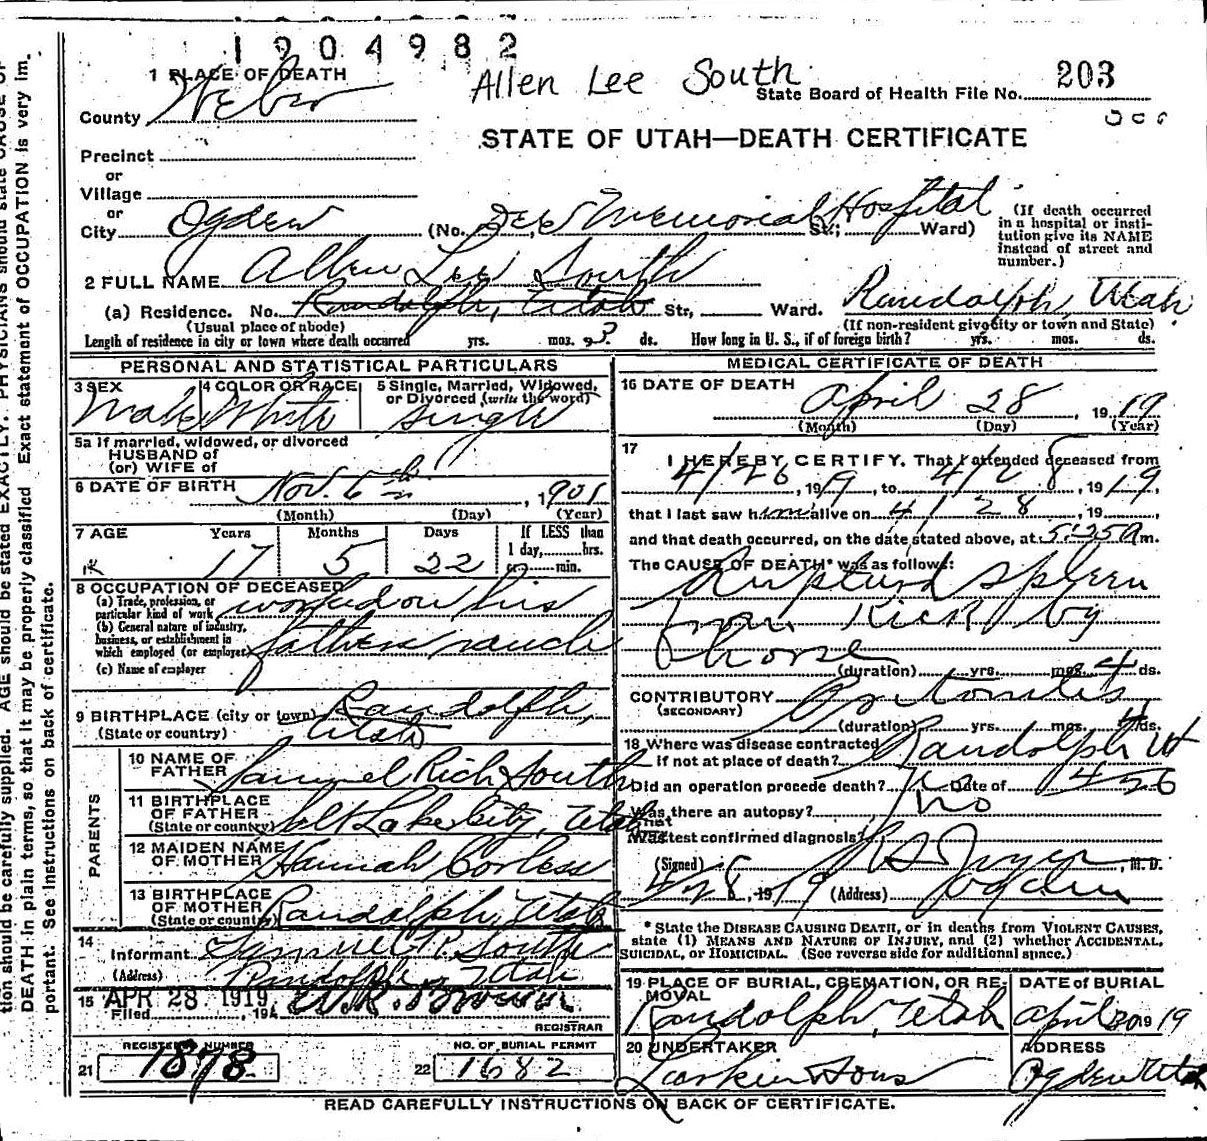 1904982
Allen Lee South
1 PLACE OF DEATH
State Board of Health File No. 203
County Weber
STATE OF UTAH—DEATH CERTIFICATE
Precinct
or
Village
or
City Ogden (No. Dee Memorial Hospital St; Ward)
(If death occurred in a hospital or insti-
tution give its NAME
instead of street and
number.)
2 FULL NAME Allen Lee South
(a) Residence. No. Randolph, Utah Str, Ward. Randolph, Utah
(Usual place of abode) (If non-resident give city or town and State)
Length of residence in city or town where death occurred yrs. mos. 3 ds. How long in U. S., if of foreign birth? yrs. mos. ds.
PERSONAL AND STATISTICAL PARTICULARS
3 SEX Male
4 COLOR OR RACE White
5 Single, Married, Widowed,
or Divorced (write the word)
single
5a If married, widowed, or divorced
HUSBAND of
(or) WIFE of
6 DATE OF BIRTH Nov. 6th, 1901
(Month) (Day) (Year)
7 AGE Years Months Days If LESS than
17 5 22 1 day, hrs.
or min.
8 OCCUPATION OF DECEASED
(a) Trade, profession, or
particular kind of work worked on his
(b) General nature of industry,
business, or establishment in
which employed (or employer) fathers ranch
(c) Name of employer
9 BIRTHPLACE (city or town) Randolph,
(State or country) Utah
PARENTS
10 NAME OF
FATHER Samuel Rich South
11 BIRTHPLACE
OF FATHER
(State or country) Salt Lake City, Utah
12 MAIDEN NAME
OF MOTHER Hannah Corless
13 BIRTHPLACE
OF MOTHER
(State or country) Randolph, Utah
14
Informant Samuel R. South
(Address) Randolph, Utah
15 APR 28 1919
Filed , 191
REGISTRAR
REGISTERED NUMBER
21 1878
NO. OF BURIAL PERMIT
22 1682
MEDICAL CERTIFICATE OF DEATH
16 DATE OF DEATH
April 28, 1919
(Month) (Day) (Year)
17
I HEREBY CERTIFY, That I attended deceased from
4/26, 1919, to 4/28, 1919,
that I last saw him alive on 4/28, 19
and that death occurred, on the date stated above, at 5:25 a m.
The CAUSE OF DEATH* was as follows:
Ruptured Spleen
from Kick by
horse
(duration) yrs. mos. 4 ds.
CONTRIBUTORY Peritonitis
(SECONDARY)
(duration) yrs. mos. 4 ds.
18 Where was disease contracted
if not at place of death? Randolph Ut
Did an operation precede death? Date of 4-26
Was there an autopsy? no
What test confirmed diagnosis?
(Signed) M. D.
4/28, 1919 (Address) Ogden
* State the DISEASE CAUSING DEATH, or in deaths from VIOLENT CAUSES,
state (1) MEANS AND NATURE OF INJURY, and (2) whether ACCIDENTAL,
SUICIDAL, or HOMICIDAL. (See reverse side for additional space.)
19 PLACE OF BURIAL, CREMATION, OR RE-
MOVAL
Randolph, Utah
DATE OF BURIAL
April 30 1919
20 UNDERTAKER
Larkin & Sons
ADDRESS
Ogden Utah
READ CAREFULLY INSTRUCTIONS ON BACK OF CERTIFICATE.
tion should be carefully supplied. AGE should be stated EXACTLY. PHYSICIANS should state CAUSE OF
DEATH in plain terms, so that it may be properly classified. Exact statement of OCCUPATION is very im-
portant. See Instructions on back of certificate.